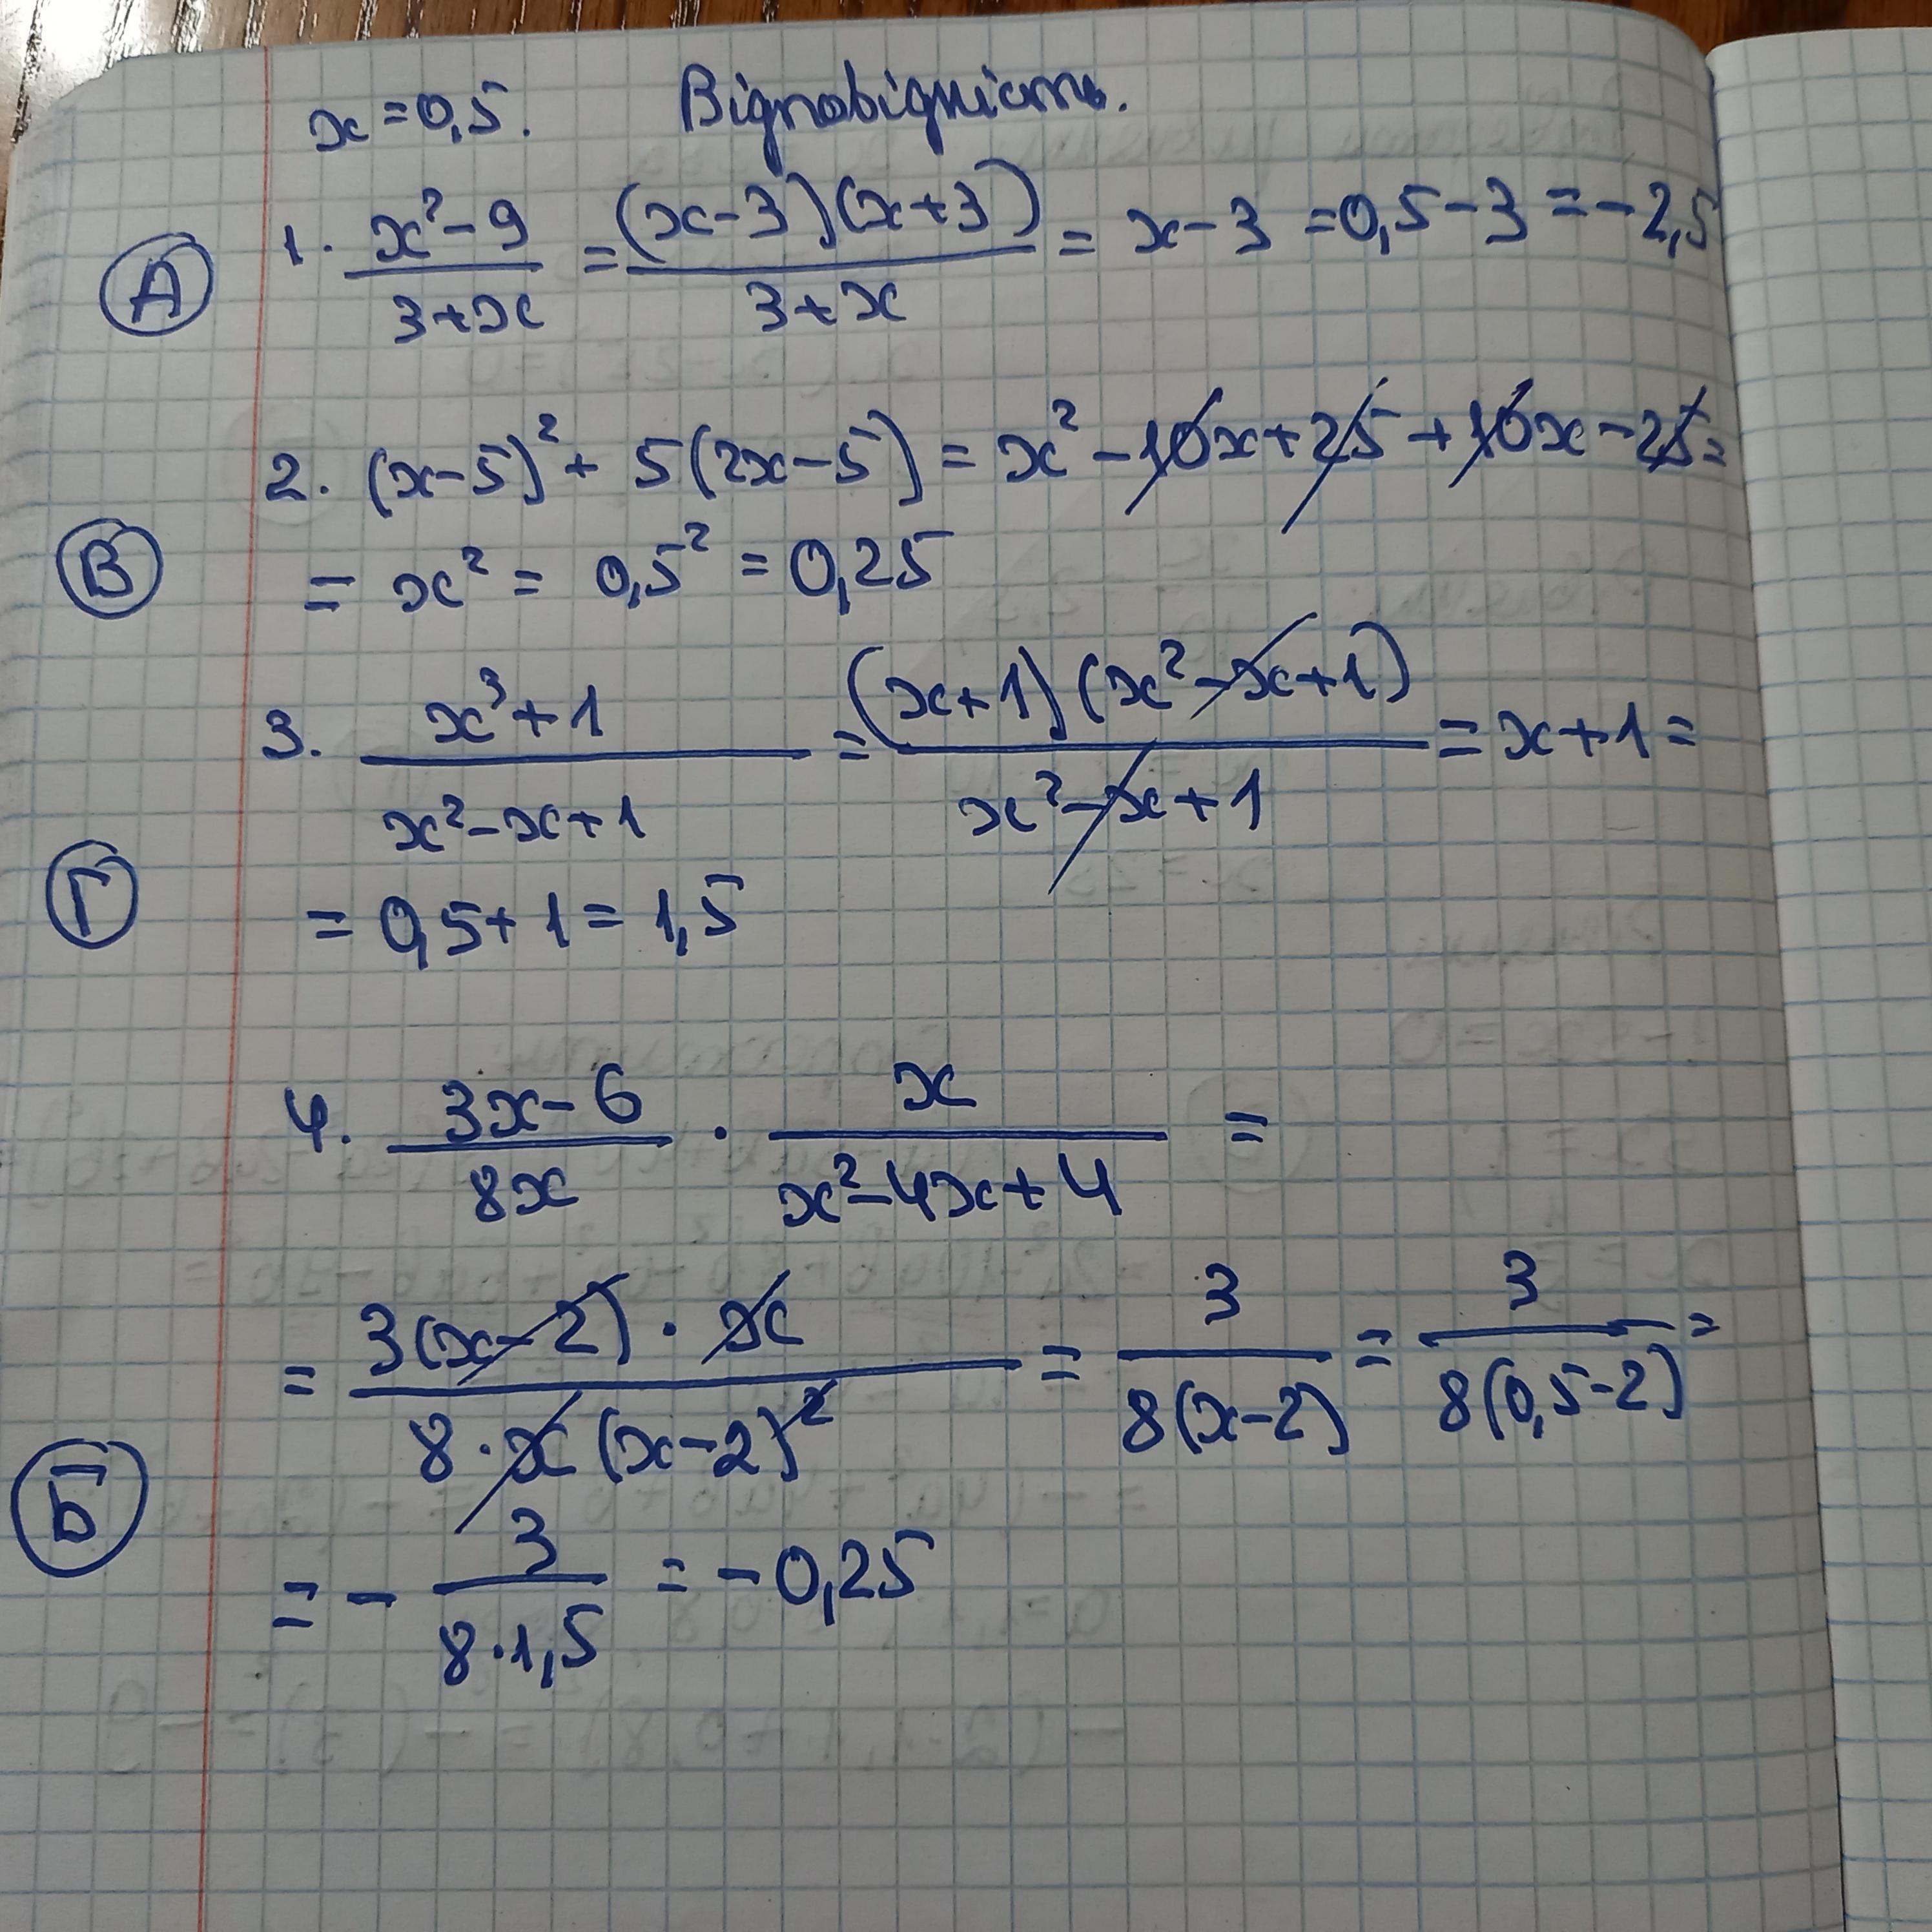 x = 0,5. Відповідність.
А 1. (x² - 9)/(3 + x) = ((x - 3)(x + 3))/(3 + x) = x - 3 = 0,5 - 3 = -2,5
2. (x - 5)² + 5(2x - 5) = x² - 10x + 25 + 10x - 25 =
В = x² = 0,5² = 0,25
3. (x³ + 1)/(x² - x + 1) = ((x + 1)(x² - x + 1))/(x² - x + 1) = x + 1 =
Г = 0,5 + 1 = 1,5
4. (3x - 6)/(8x) · x/(x² - 4x + 4) =
= (3(x - 2) · x)/(8 · x(x - 2)²) = 3/(8(x - 2)) = 3/(8(0,5 - 2)) =
Б = - 3/(8 · 1,5) = -0,25